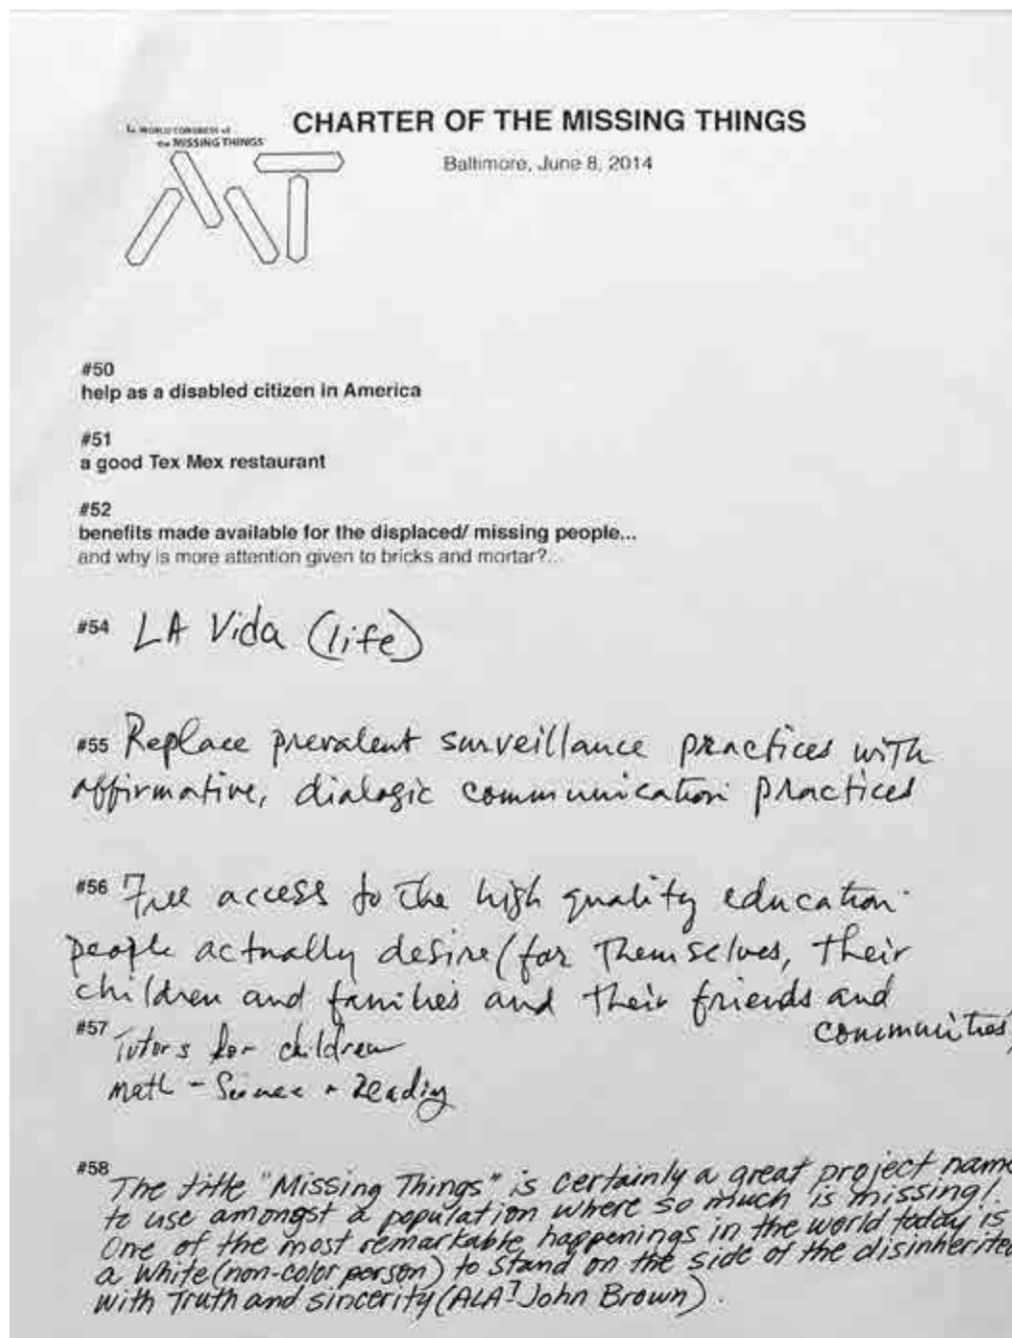 1st WORLD CONGRESS of
the MISSING THINGS
MT
CHARTER OF THE MISSING THINGS
Baltimore, June 8, 2014
#50
help as a disabled citizen in America
#51
a good Tex Mex restaurant
#52
benefits made available for the displaced/ missing people...
and why is more attention given to bricks and mortar?...
#54 LA Vida (life)
#55 Replace prevalent surveillance practices with
affirmative, dialogic communication practices
#56 Free access to the high quality education
people actually desire (for themselves, their
children and families and their friends and
communities)
#57 Tutors for children
math - Science + Reading
#58
The title "Missing Things" is certainly a great project name
to use amongst a population where so much is missing!
One of the most remarkable happenings in the world today is
a white (non-color person) to stand on the side of the disinherited
with Truth and sincerity (ALA John Brown).